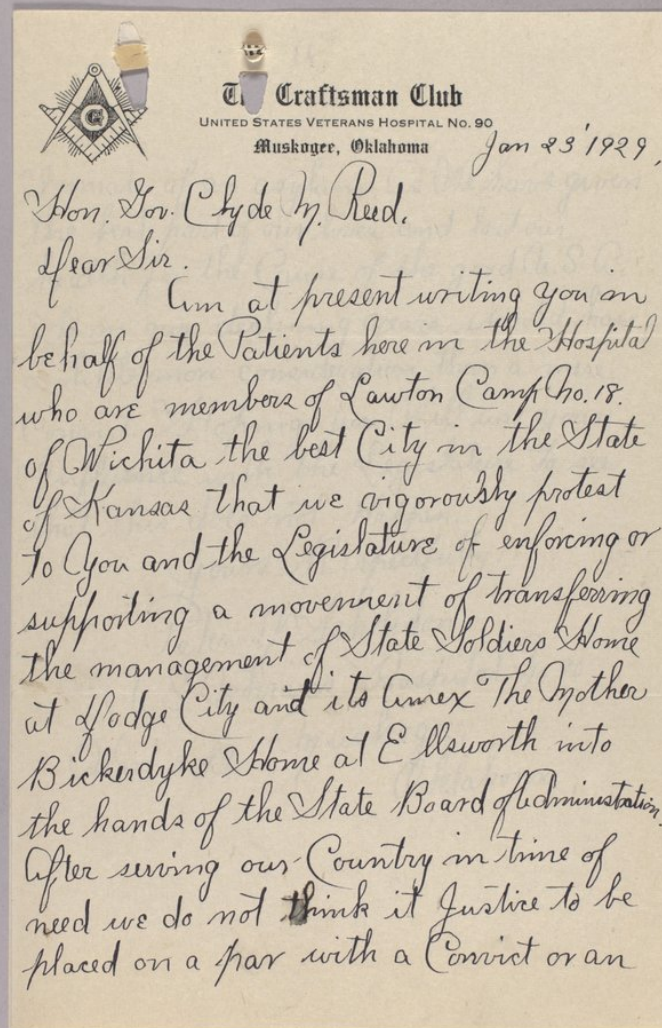 G
The Craftsman Club
UNITED STATES VETERANS HOSPITAL No. 90
Muskogee, Oklahoma
Jan 23' 1929,
Hon. Gov. Clyde M. Reed.
Dear Sir.
Am at present writing you in
behalf of the Patients here in the Hospital
who are members of Lawton Camp No. 18.
of Wichita the best City in the State
of Kansas that we vigorously protest
to You and the Legislature of enforcing or
supporting a movement of transferring
the management of State Soldiers Home
at Dodge City and its Annex The Mother
Bickerdyke Home at Ellsworth into
the hands of the State Board of Administration.
After serving our Country in time of
need we do not think it Justice to be
placed on a par with a Convict or an